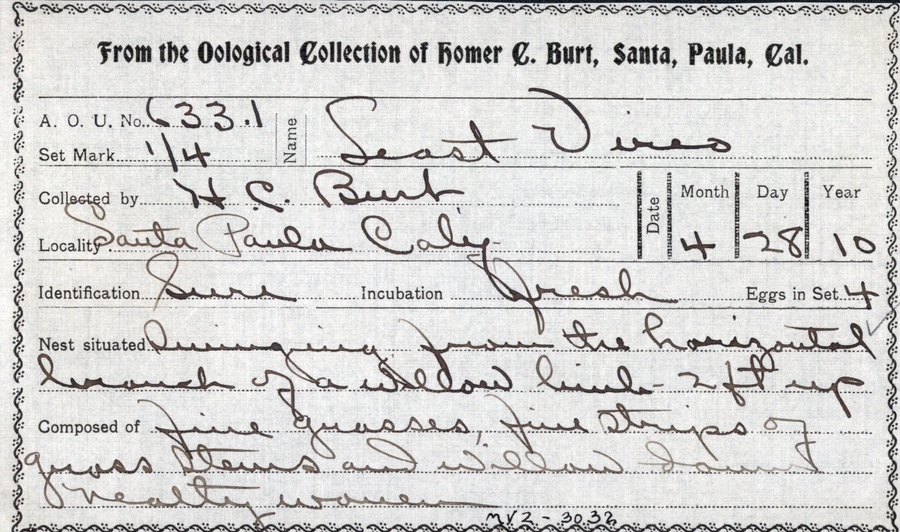 From the Oological Collection of Homer C. Burt, Santa, Paula, Cal.
A. O. U. No. 633.1 Name Least Vireo
Set Mark 1/4
Collected by H. C. Burt Date Month Day Year
Locality Santa Paula Calif 4 28 10
Identification Sure Incubation Fresh Eggs in Set 4
Nest situated hinging from the horizontal
branch of a willow limb - 2 ft up
Composed of fine grasses, fine strips of
grass stems and willow down
neatly woven
MVZ - 3032